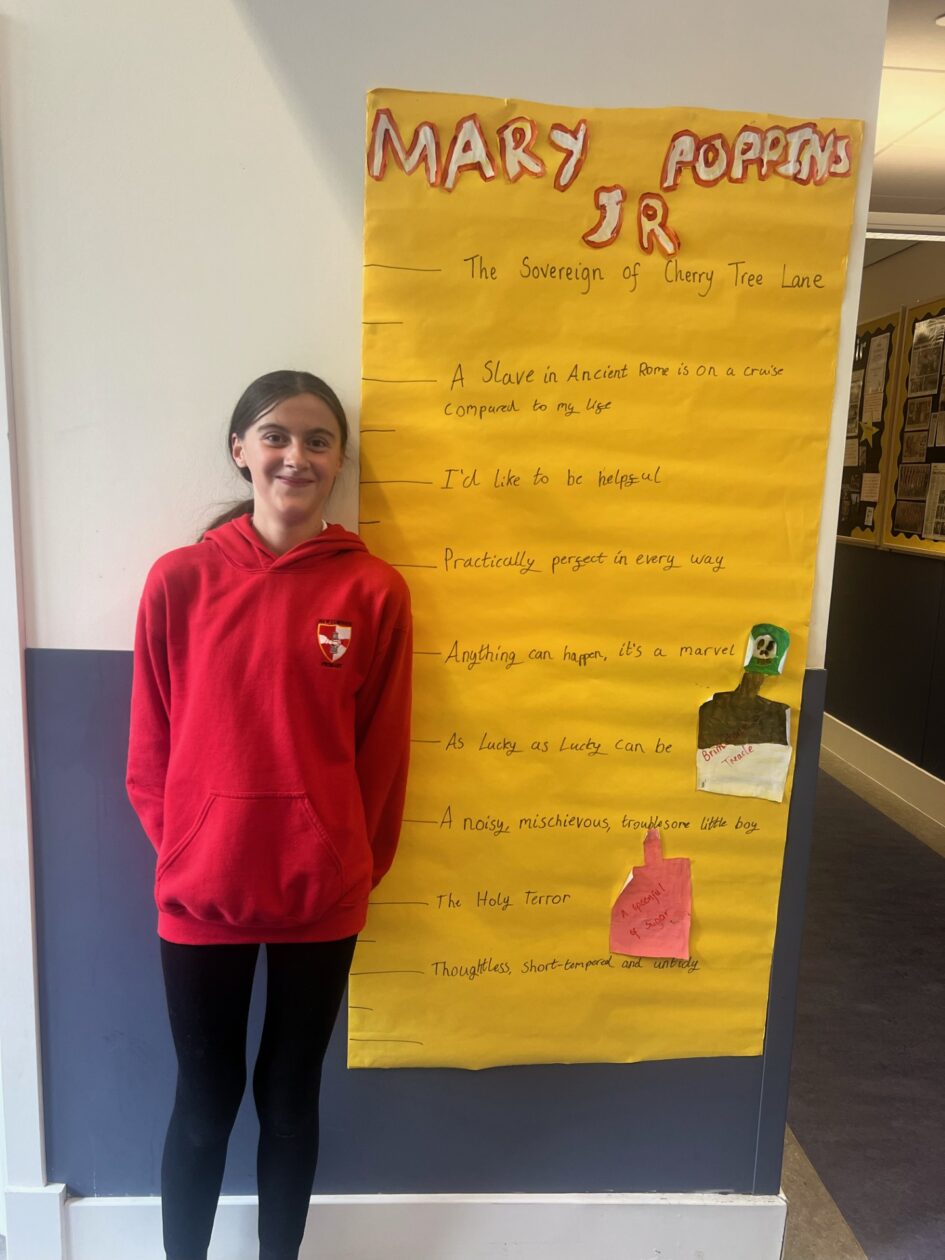 MARY POPPINS
JR
The Sovereign of Cherry Tree Lane
A Slave in Ancient Rome is on a cruise
compared to my life
I'd like to be helpful
Practically perfect in every way
Anything can happen, it's a marvel
As Lucky as Lucky can be
Treacle
A noisy, mischievous, troublesore little boy
The Holy Terror
A spoonful
of Sugar
Thoughtless, short-tempered and untidy